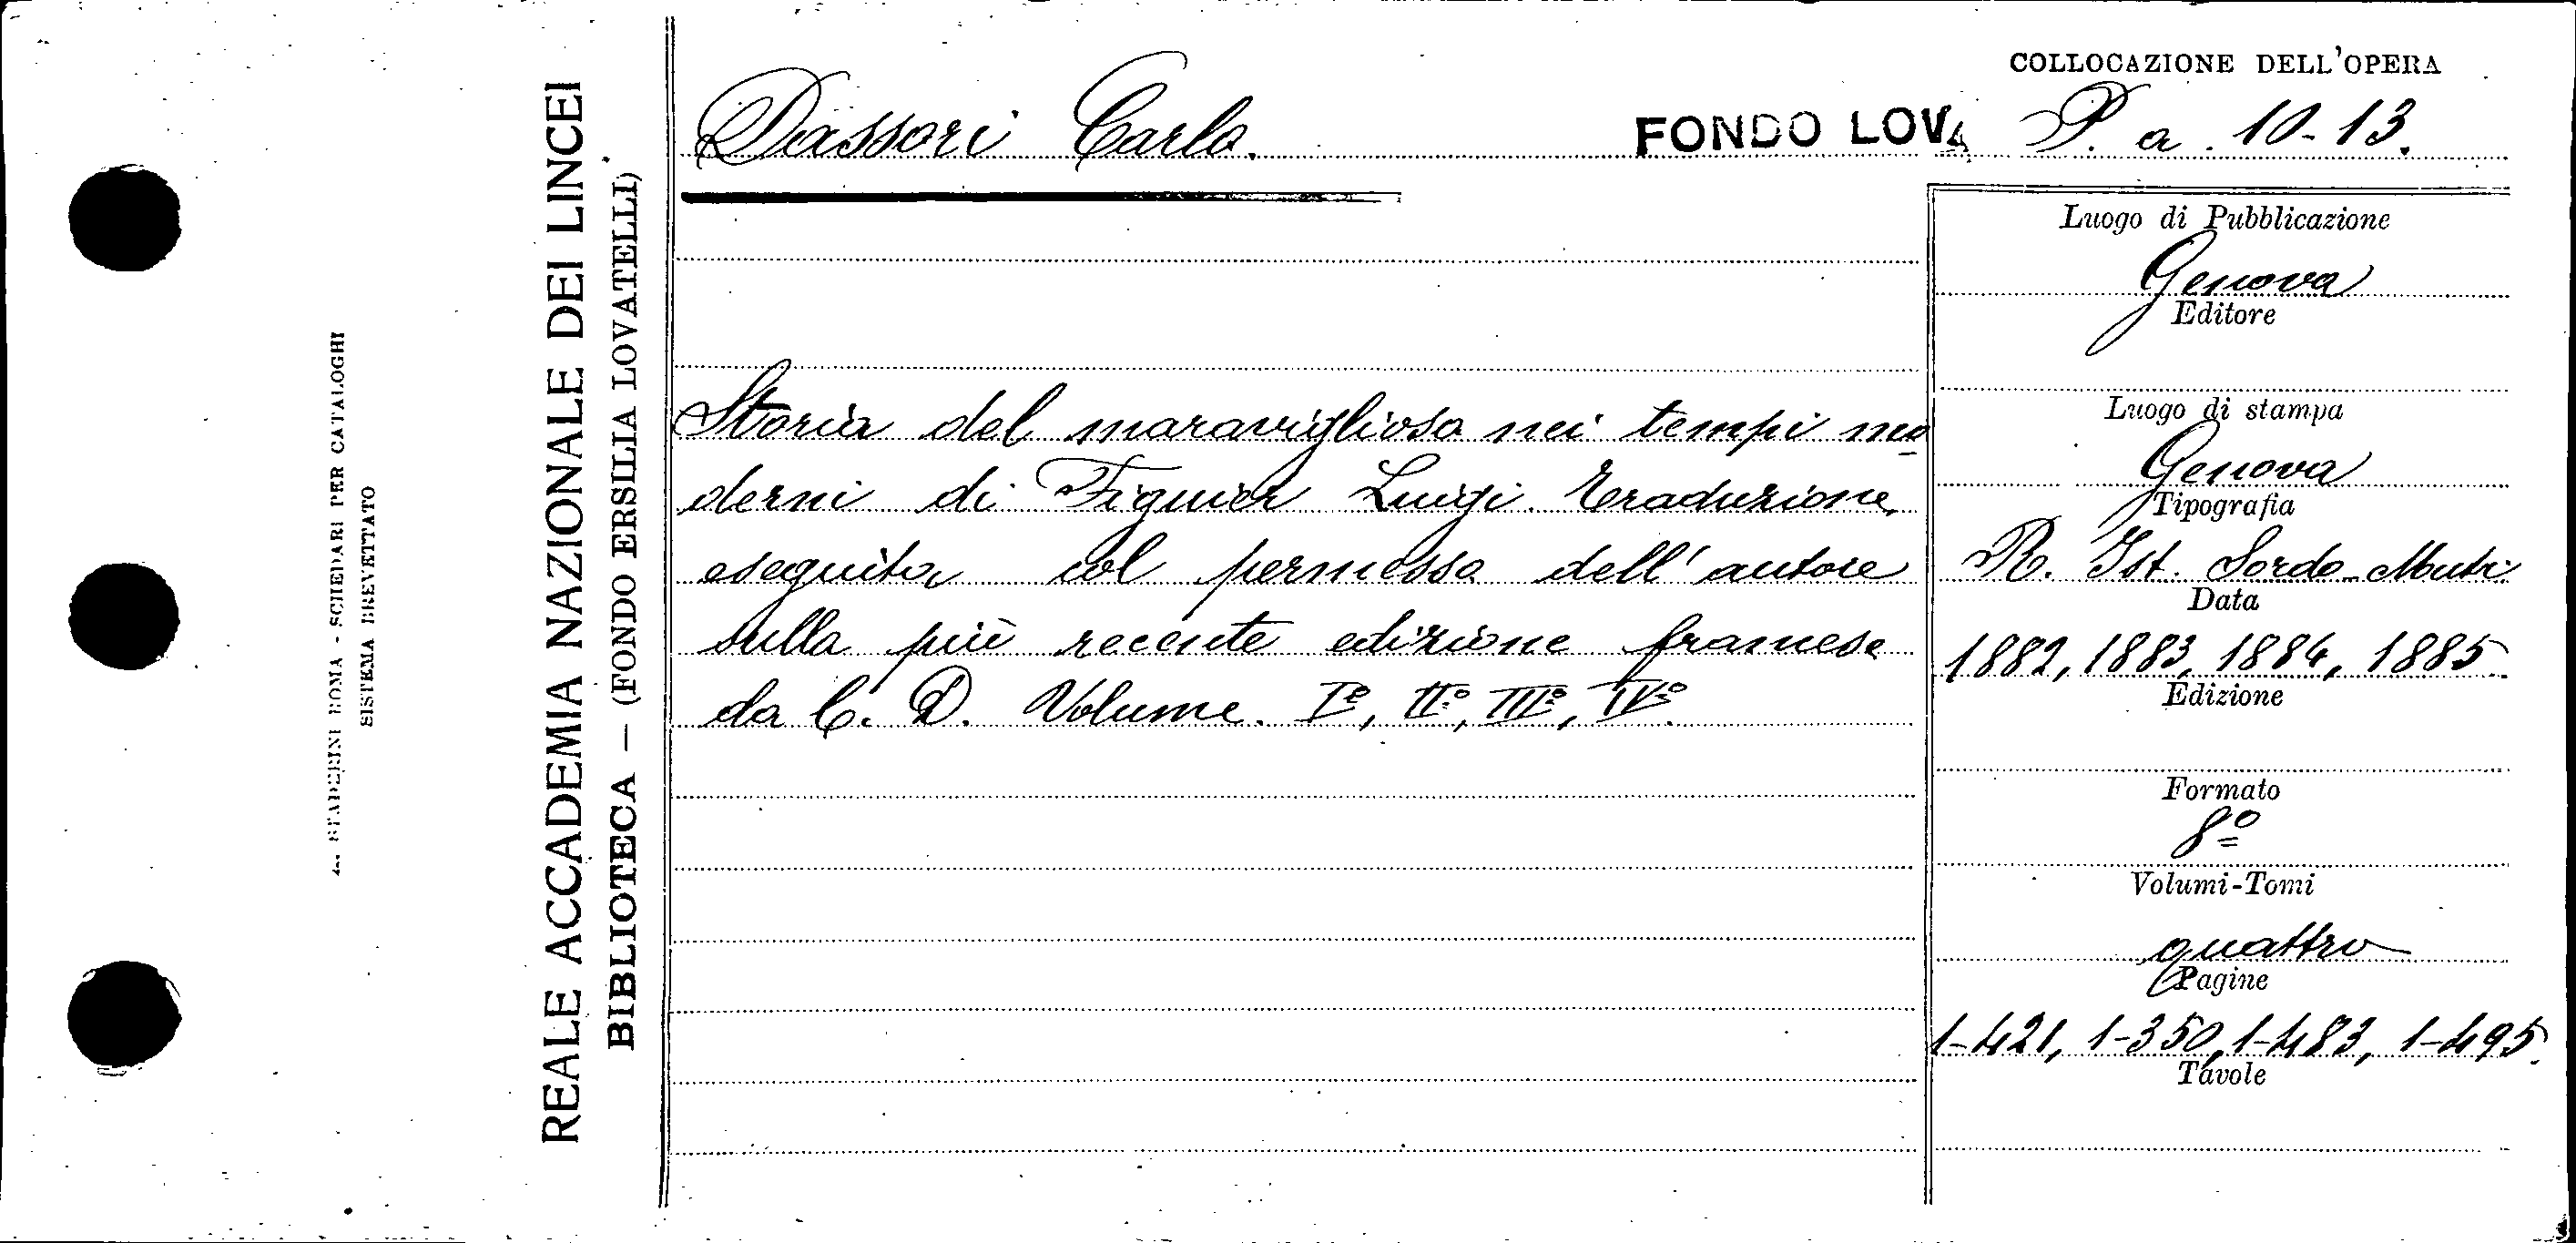 COLLOCAZIONE DELL'OPERA
Dassori Carlo.
FONDO LOVA P. a. 10-13.
Storia del maraviglioso nei tempi mo
derni di Figuier Luigi. Traduzione
eseguita col permesso dell'autore
sulla più recente edizione francese
da C. D. Volume. I°, II°, III°, IV°.
Luogo di Pubblicazione
Genova
Editore
Luogo di stampa
Genova
Tipografia
R. Ist. Sordo-Muti
Data
1882, 1883, 1884, 1885.
Edizione
Formato
8°
Volumi-Tomi
quattro
Pagine
1-421, 1-350, 1-483, 1-495.
Tavole
REALE ACCADEMIA NAZIONALE DEI LINCEI
BIBLIOTECA — (FONDO ERSILIA LOVATELLI)
STADERINI ROMA - SCHEDARI PER CATALOGHI
SISTEMA BREVETTATO